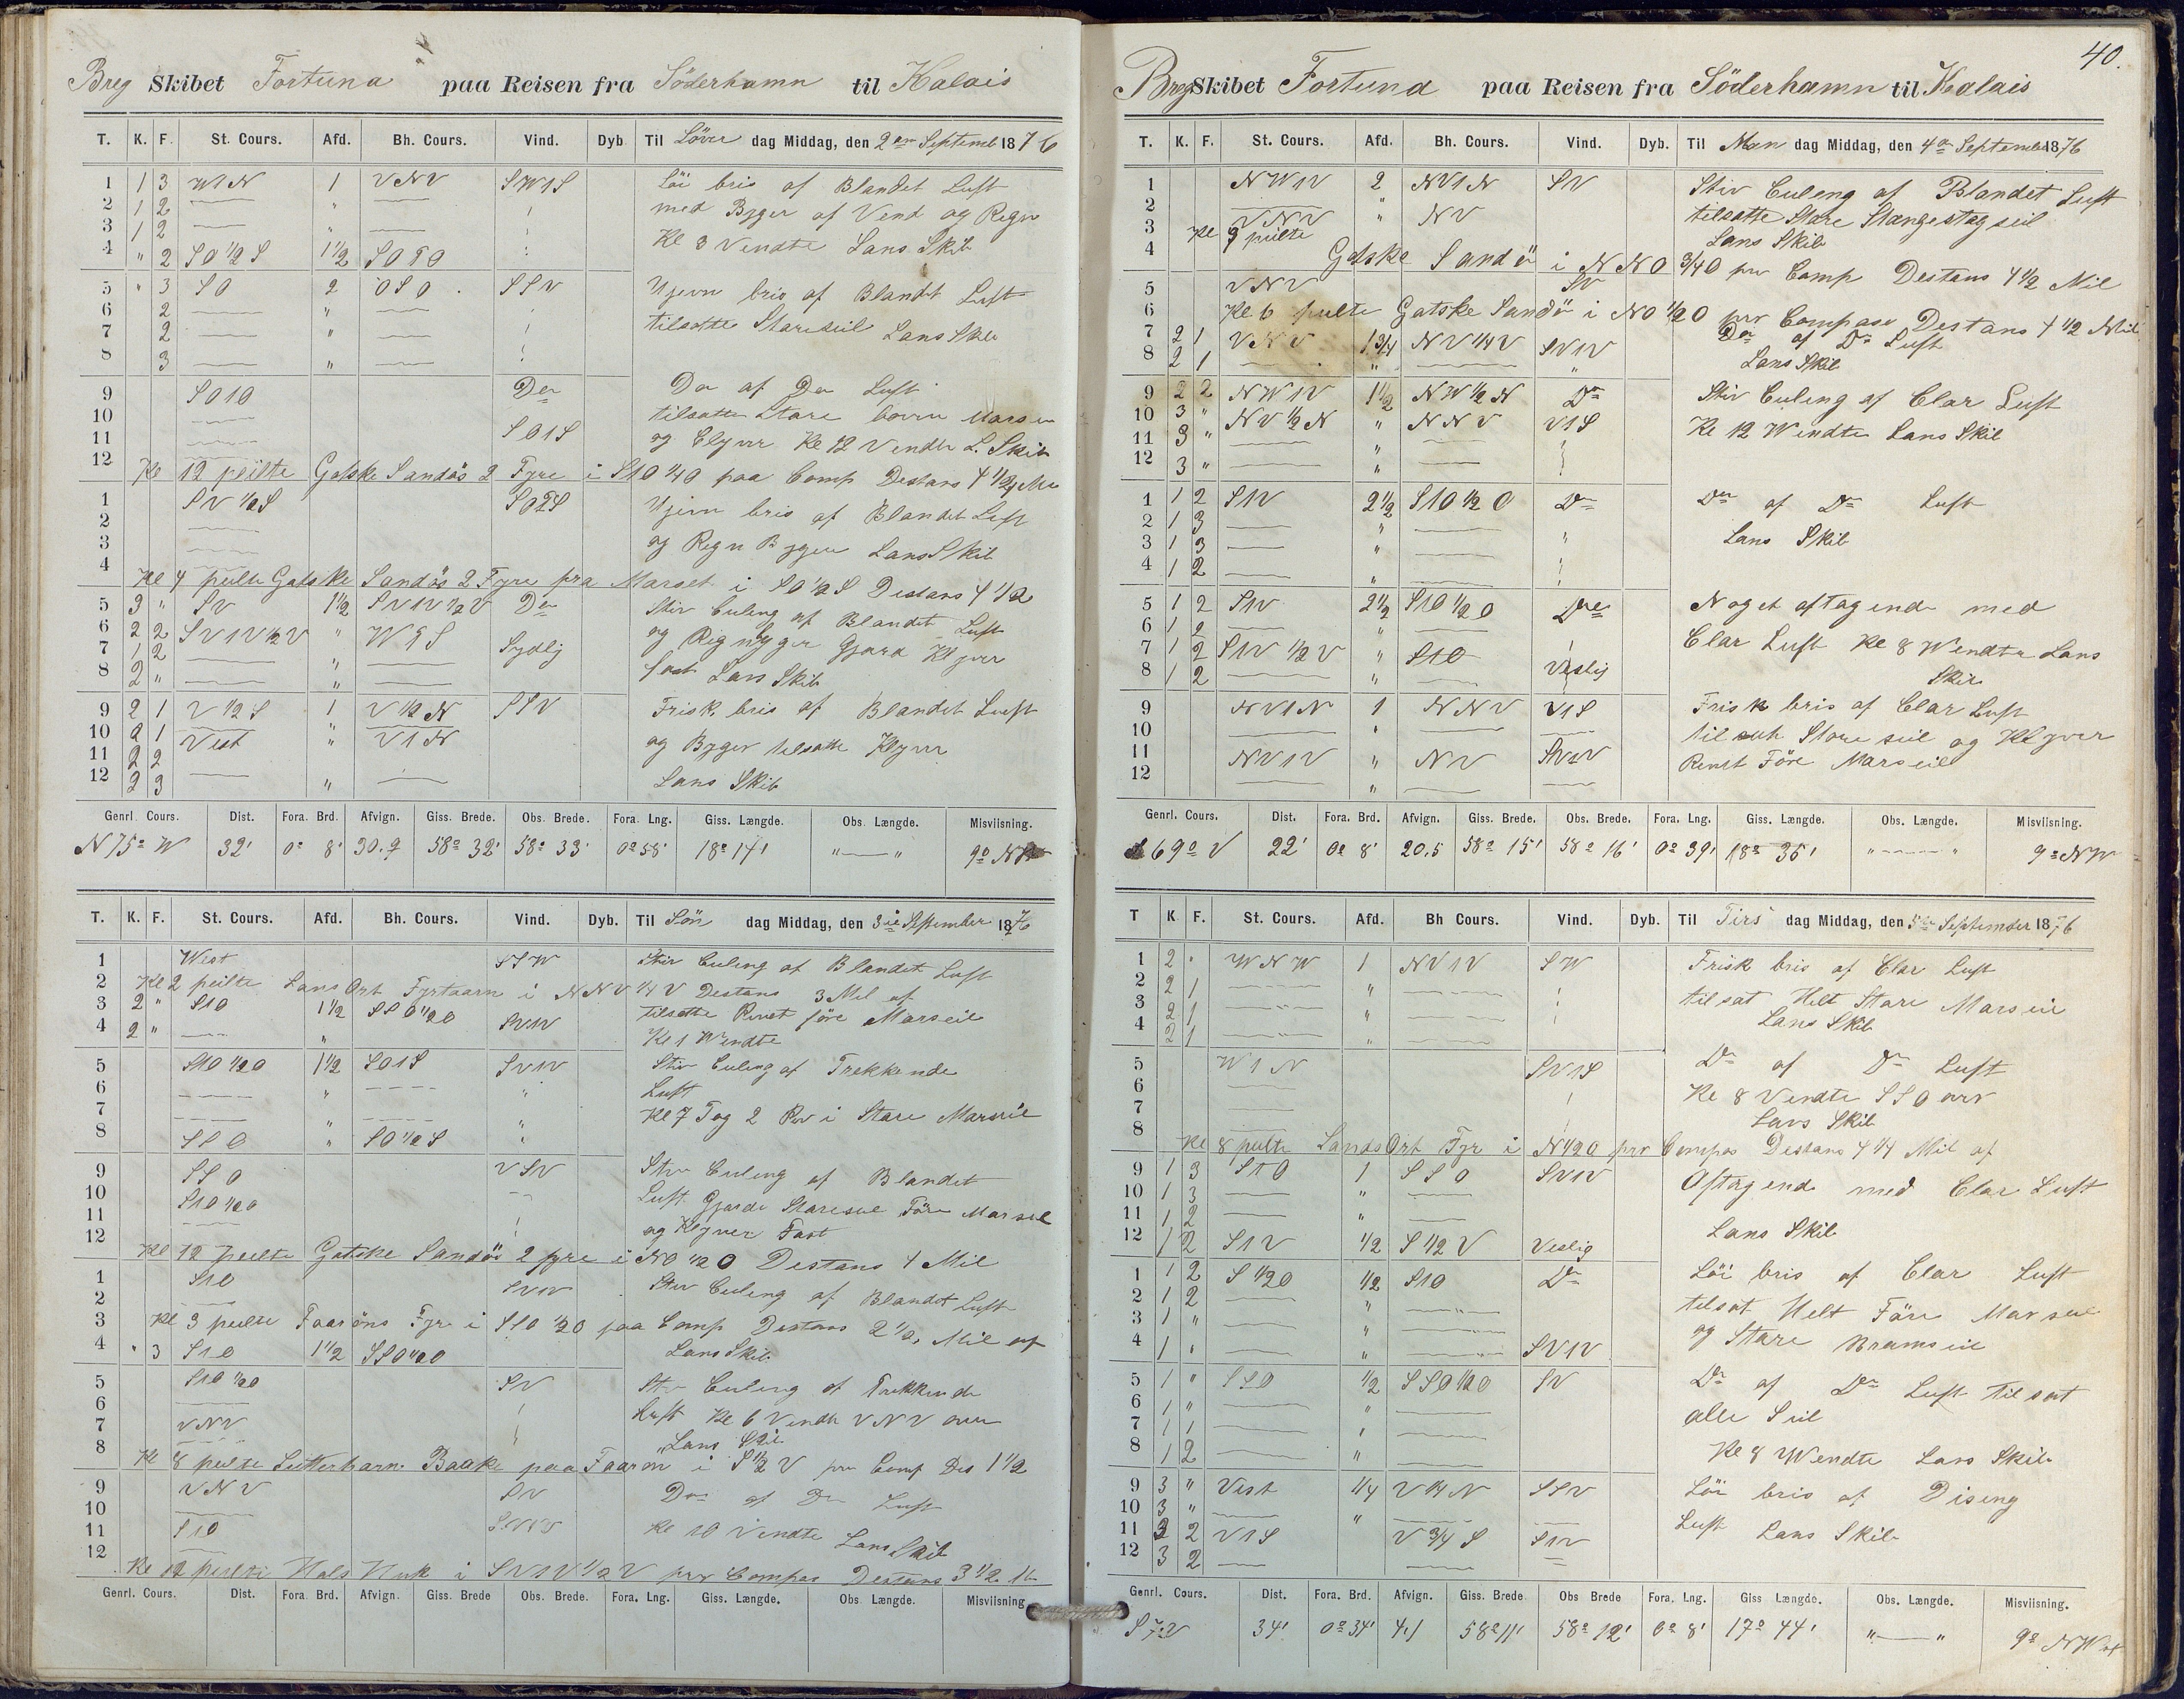 Breg Skibet Fortuna paa Reisen fra Söderhamn til Kalais
T. K. F. St. Cours. Afd. Bh. Cours. Vind. Dyb. Til Löver dag Middag, den 2en Septemb 1876
1 1 3 W1N 1 VNV SW1S Löi bris af Blandet Luft
2 1 2 — " — med Byger af Vend og Regn
3 1 2 — " — Kl 3 Vendte Lans Skib
4 " 2 SO 1/2 S 1 1/2 SO
5 " 3 SO 2 OSO SSV Ujevn bris af Blandet Luft
6 2 — " — tilsatte Stareseil Lans Skib
7 2 — " —
8 3 — " —
9 SO1O Do Do af Do Luft
10 — tilsatte Stare Marsse
11 — SO1S og Clyver Kl 12 Vendte L. Skib
12 Kl 12 peilte Gotske Sandös 2 Fyre i S1O 1/4O paa Comp Destans 4 1/2 Mil
1 SV 1/2S Ujevn bris af Blandet Luft
2 — og Regn Byger Lans Skib
3 —
4 Kl 4 peilte Gotske Sandös 2 Fyre fra Marset i SO 1/2 S Destans 4 1/2
5 3 " SV 1 1/2 SV1V 1/2 V Do Stiv Culing af Blandet Luft
6 2 2 SV1V 1/2 V " og Regnbyger Gjorde Klyver
7 1 2 — " — Sydlig fast Lans Skib
8 2 " — " —
9 2 1 V 1/2 S 1 V 1/2 N SSV Frisk bris af Blandet Luft
10 2 1 Vest " V1N og Byger tilsatte Klyver
11 2 2
12 2 3 — " — Lans Skib
Genrl. Cours. Dist. Fora. Brd. Afvign. Giss. Brede. Obs. Brede. Fora. Lng. Giss. Længde. Obs. Længde. Misviisning.
N 75° W 32' 0° 8' 30.9 58° 32' 58° 33' 0° 58' 18° 14' "—" 9° NW
T. K. F. St. Cours. Afd. Bh. Cours. Vind. Dyb. Til Sön dag Middag, den 3ie September 1876
1 West SSW Stiv Culing af Blandet Luft
2 Kl 2 peilte Lans Ort Fyrtaarn i NNV 1/4 V Destans 3 Mil af
3 2 " S1O 1 1/2 SSO 1/2O tilsatte Revet före Marseil
4 2 " — " SV1V Kl 1 Wendte
5 S1O 1/2O 1 1/2 SO1S SV1V Stiv Culing af Trekkende
6 — " — " Luft
7 — " — " Kl 7 Tog 2 Rev i Stare Marseil
8 SSO " SO 1/2 S "
9 SSO VSV Stiv Culing af Blandet
10 S1O 1/2O — Luft. Gjorde Stareseil Före Marseil
11 — og Klyver Fast
12 Kl 12 peilte Gotske Sandös 2 fyre i NO 1/2 O Destans 4 Mil
1 S1O SV1V Stiv Culing af Blandet Luft
2 —
3 Kl 3 peilte Faaröns Fyr i SSO 1/2O paa Comp Destans 2 1/2 Mil af
4 " 3 S1O 1 1/2 SSO 1/2O Lans Skib
5 S1O 1/2O SV Stiv Culing af Trekkende
6 — Luft Kl 6 Vendte VNV over
7 VNV Lans Skib
8 Kl 8 peilte Baake paa Faarön i S 1/2 V pr Comp Des 1 1/2
9 VNV SV Do af Do Luft
10 — Kl 10 Vendte Lans Skib
11 S1O SV1V
12 Kl 12 peilte Hols Huk i SV1V 1/2 V pr Compas Destans 3 1/2 M
Genrl. Cours. Dist. Fora. Brd. Afvign. Giss. Brede Obs. Brede. Fora. Lng. Giss. Længde. Obs. Længde. Misviisning
40.
Breg Skibet Fortuna paa Reisen fra Söderhamn til Kalais
T. K. F. St. Cours. Afd. Bh. Cours. Vind. Dyb. Til Man dag Middag, den 4de September 1876
1 NW1V 2 NV1N SV Stiv Culing af Blandet Luft
2 — " NV tilsatte Stare Stangestagseil
3 VNV Lans Skib
4 Kl 3 peilte Gotske Sandö i NNO 3/4O pr Comp Destans 4 1/2 Mil
5 VNV SV
6 Kl 6 peilte Gotske Sandö i NO 1/2O pr Compas Destans 4 1/2 Mil
7 2 1 VNV 1 3/4 NV 1/4V SV1V Do af Do Luft
8 2 1 — " — " Lans Skib
9 2 2 NW1V 1 1/2 NW 1/2 N Do Stiv Culing af Clar Luft
10 3 " NV 1/2 N " NNV V1S Kl 12 Wendte Lans Skib
11 3 " — " —
12 3 " — " —
1 1 2 S1V 2 1/2 S1O 1/2 O Do Do af Do Luft
2 1 3 — " — "
3 1 3 — " — Lans Skib
4 1 2 — " —
5 1 2 S1V 2 1/2 S1O 1/2O Do Noget aftagende med
6 1 2 — " — Clar Luft Kl 8 Wendte Lans
7 1 2 S1V 1/2 V " S1O Skib
8 1 2 — " — Vestlig
9 NV1N 1 NNV V1S Frisk bris af Clar Luft
10 — " — — tilsatte Stare seil og Klyver
11 NV1V " NV SV1V Revet Före Marseil
12 — " — —
Genrl. Cours. Dist. Fora. Brd. Afvign. Giss. Brede. Obs. Brede. Fora. Lng. Giss. Længde. Obs. Længde. Misviisning.
69° V 22' 0° 8' 20.5 58° 15' 58° 16' 0° 39' 18° 35' "—" 9° NW
T K. F. St. Cours. Afd. Bh Cours. Vind. Dyb. Til Tirs dag Middag, den 5te September 1876
1 2 " WNW 1 NV1V SW Frisk bris af Clar Luft
2 2 1 — " — tilsat Helt Stare Marseil
3 2 1 — " — Lans Skib
4 2 1 — " —
5 W1N SV1S Do af Do Luft
6 — Kl 8 Vendte SSO over
7 — Lans Skib
8 Kl 8 peilte LandsOrt Fyr i N 1/2O pr Compas Destans 4 1/4 Mil af
9 1 3 S1O 1 SSO SV1V Aftagende med Clar Luft
10 1 3 — " —
11 1 2 — " — Lans Skib
12 1 2 S1V 1/2 S 1/2 V Veslig
1 1 2 S 1/2O 1/2 S1O Do Löi bris af Clar Luft
2 1 2 — " — tilsat Helt Före Marseil
3 1 " — " — og Stare Bramseil
4 1 " — " — SV1V
5 1 " SSO 1/2 SSO 1/2O SV Do af Do Luft tilsat
6 1 " — " — alle Seil
7 1 1 — " —
8 1 2 — " — Kl 8 Wendte Lans Skib
9 3 " Vest 1/4 V 1/4 N SSV Löi bris af Diseng
10 3 " — " — Luft Lans Skib
11 3 2 V1S V 3/4 S S1V
12 3 2 — — —
Genrl. Cours. Dist. Fora. Brd. Afvign. Giss. Brede Obs Brede Fora. Lng. Giss Længde. Obs. Længde. Misviisning.
S 7° V 34' 0° 34' 4.1 58° 11' 58° 12' 0° 8' 17° 44' "—" 9° NW